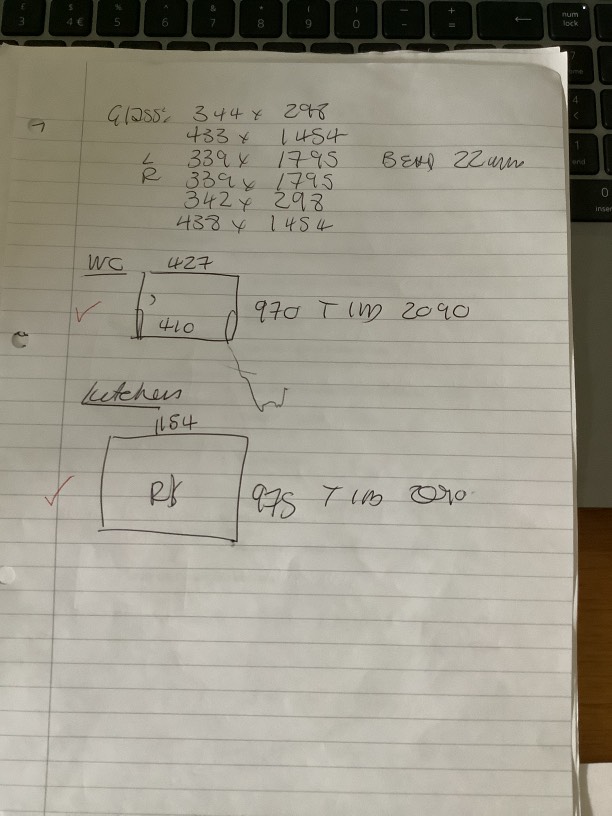 Glass: 344 x 298
433 x 1454
L 339 x 1795 BEAD 22mm
R 339 x 1795
342 x 298
438 x 1454
WC 427
410 970 T
2090
Kitchen
1154
975 T
2090